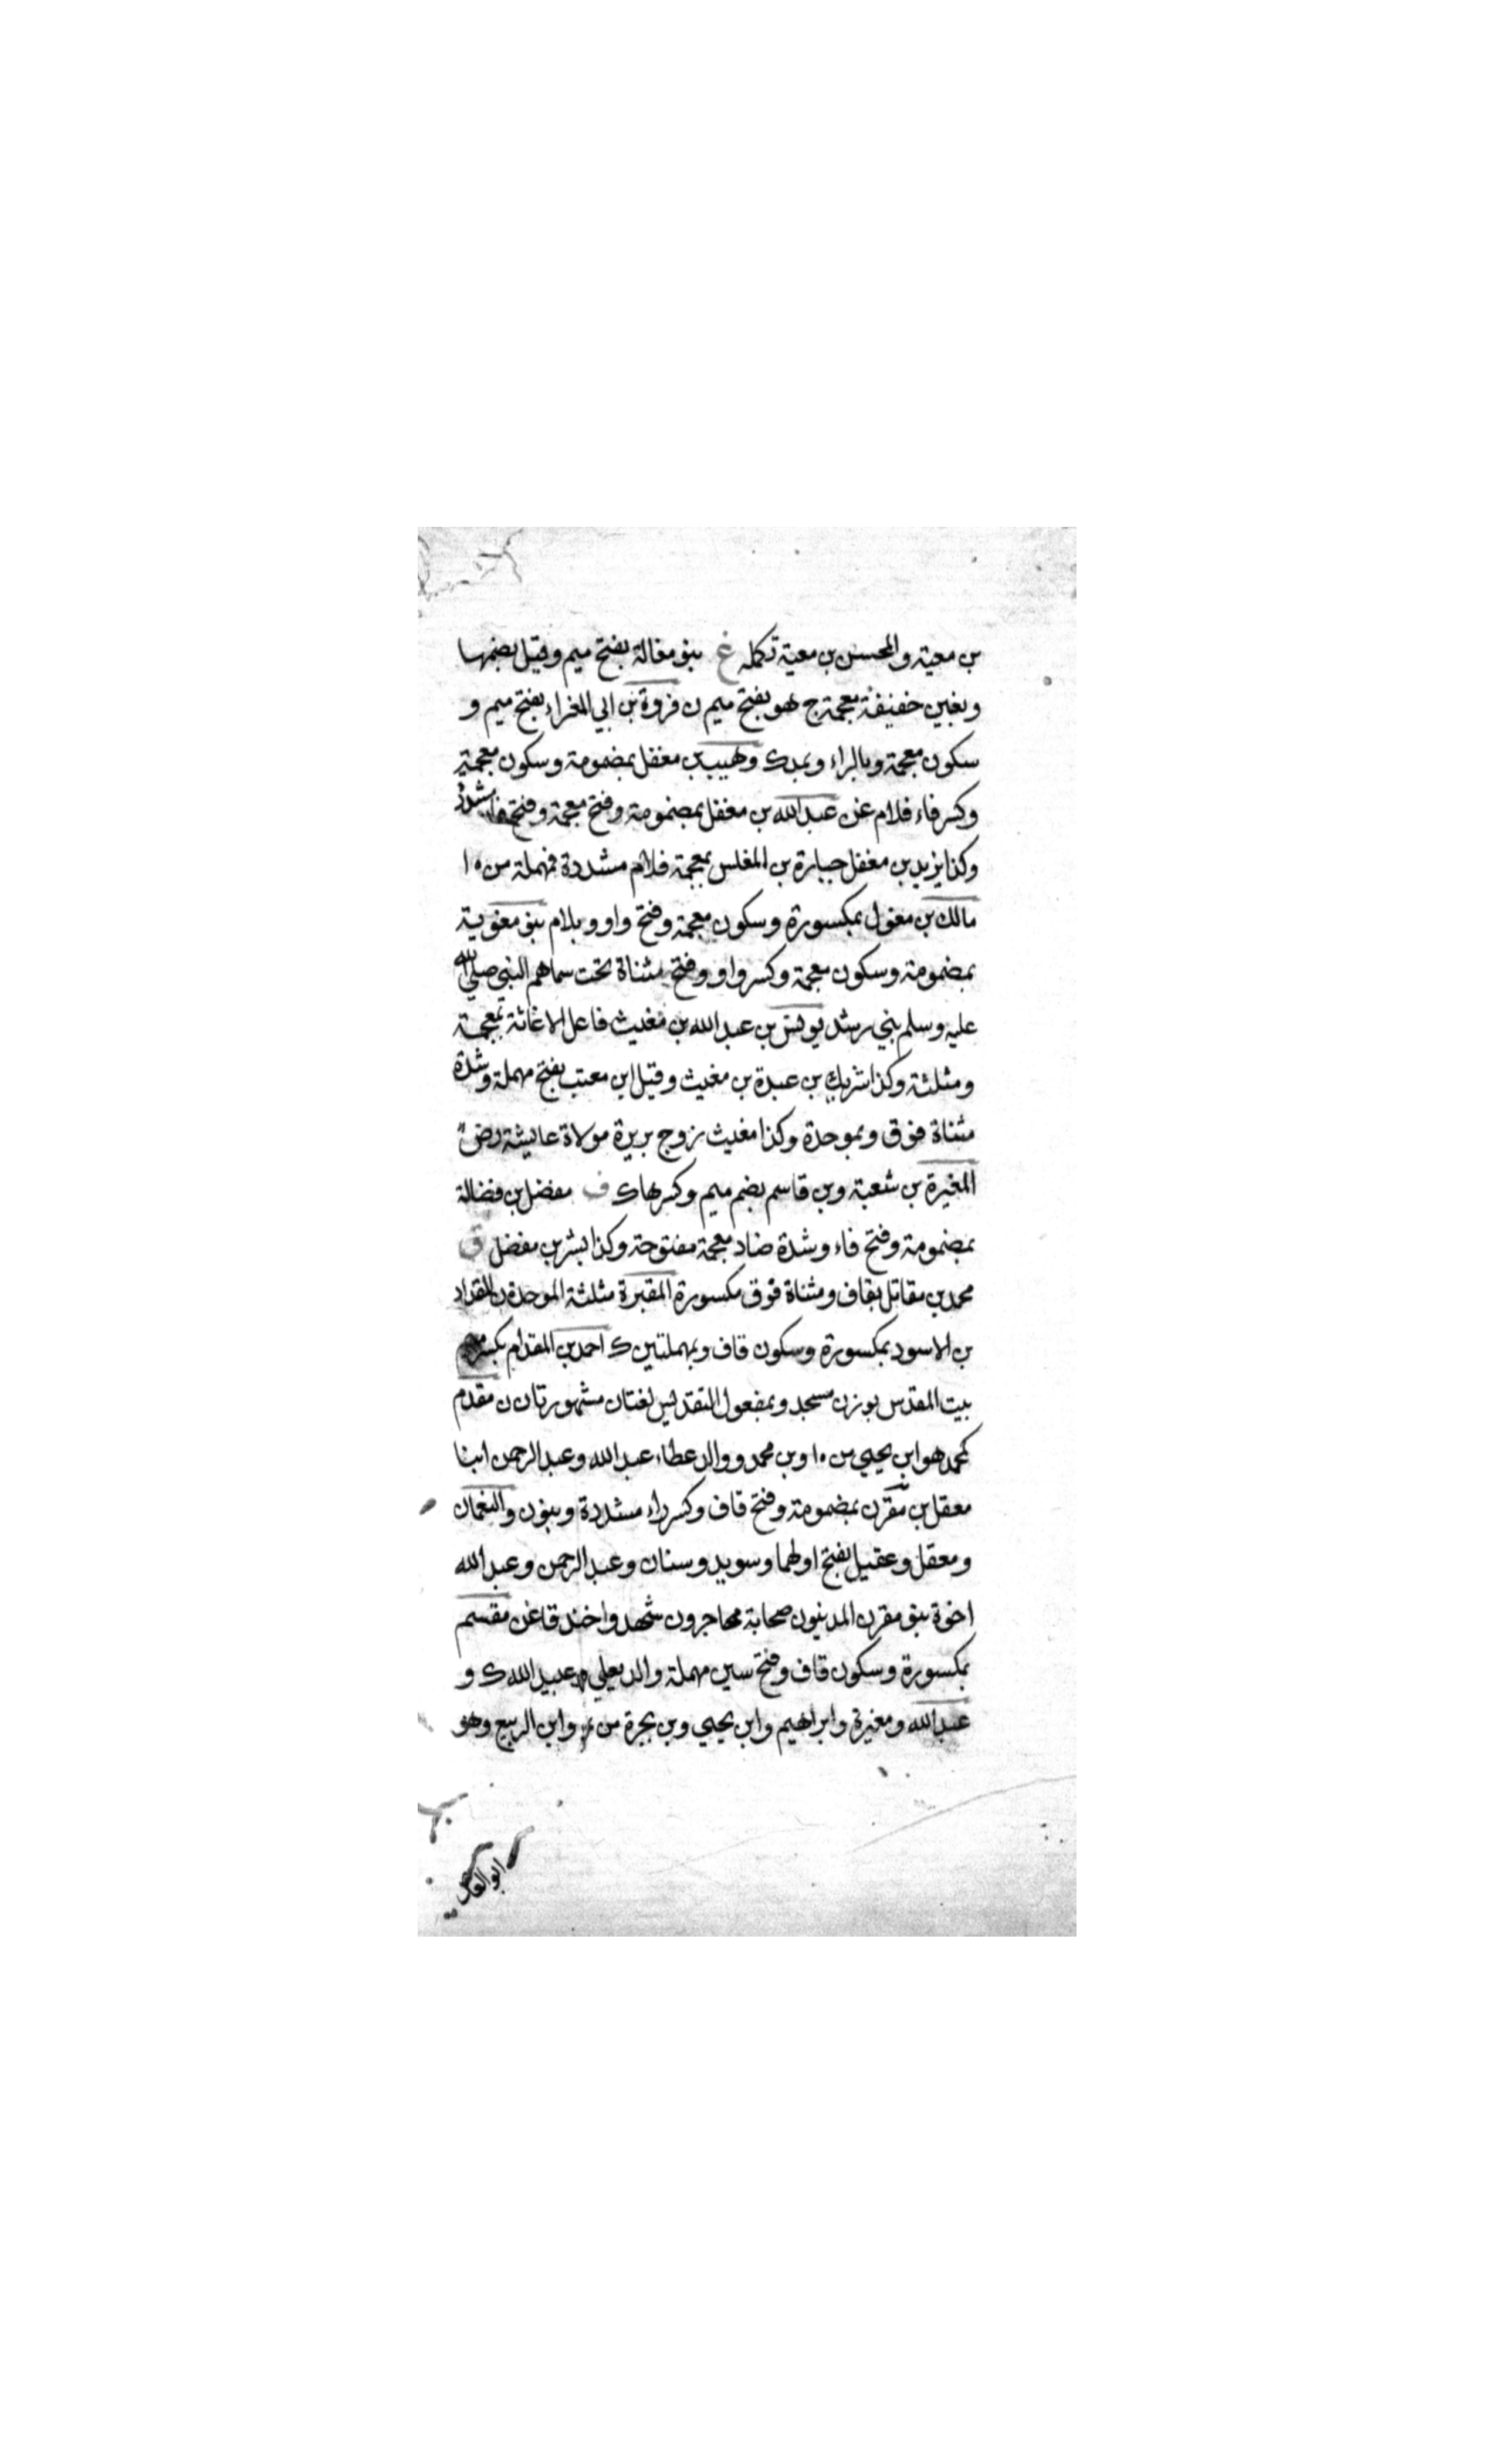 بن معية والمحسن بن معية تكمله غ بنو مغالة بفتح ميم وقيل بضمها
وبغين خفيفة معجمة ج هو بفتح ميم ن فروة بن ابي المغراء بفتح ميم و
سكون معجمة وبالراء وبمد ك وهبيب بن مغفل بمضمومة وسكون معجمة
وكسر فاء فلام غن عبد الله بن مغفل بمضمومة وفتح معجمة وفتح فاء مشددة
وكذا يزيد بن مغفل جبارة بن المغلس بمعجمة فلام مشددة فمهملة من ١٠
مالك بن مغول بمكسورة وسكون معجمة وفتح واو وبلام بنو مغوية
بمضمومة وسكون معجمة وكسر واو وفتح مثناة تحت سماهم النبي صلى الله
عليه وسلم بني رشد يونس بن عبد الله بن مغيث فاعل الاغاثة بمعجمة
ومثلثة وكذا شريك بن عبدة بن مغيث وقيل ابن معتب بفتح مهملة وشدة
مثناة فوق وبموحدة وكذا مغيث زوج بريرة مولاة عايشة رض
المغيرة بن شعبة وبن قاسم بضم ميم وكسرها ك ف مفضل بن فضالة
بمضمومة وفتح فاء وشدة ضاد معجمة مفتوحة وكذا بشر بن مفضل ق
محمد بن مقاتل بقاف ومثناة فوق مكسورة المقبرة مثلثة الموحدة ن المقداد
بن الاسود بمكسورة وسكون قاف وبمهملتين ك احمد بن المقدام بكسر
بيت المقدس بوزن مسجد وبمفعول التقديس لغتان مشهورتان ن مقدم
كمحمد هو ابن يحيى من ١٠ وبن محمد ووالد عطاء عبد الله وعبد الرحمن ابنا
معقل بن مقرن بمضمومة وفتح قاف وكسر راء مشددة وبنون والنعمان
ومعقل وعقيل بفتح اولهما وسويد وسنان وعبد الرحمن وعبد الله
اخوة بنو مقرن المدنيون صحابة مهاجرون شهدوا خندقا غن مقسم
بمكسورة وسكون قاف وفتح سين مهملة والد يعلي وعبيد الله ك و
عبد الله ومغيرة وابراهيم وابن يحيى وبن بجرة من وابن الربيع وهو